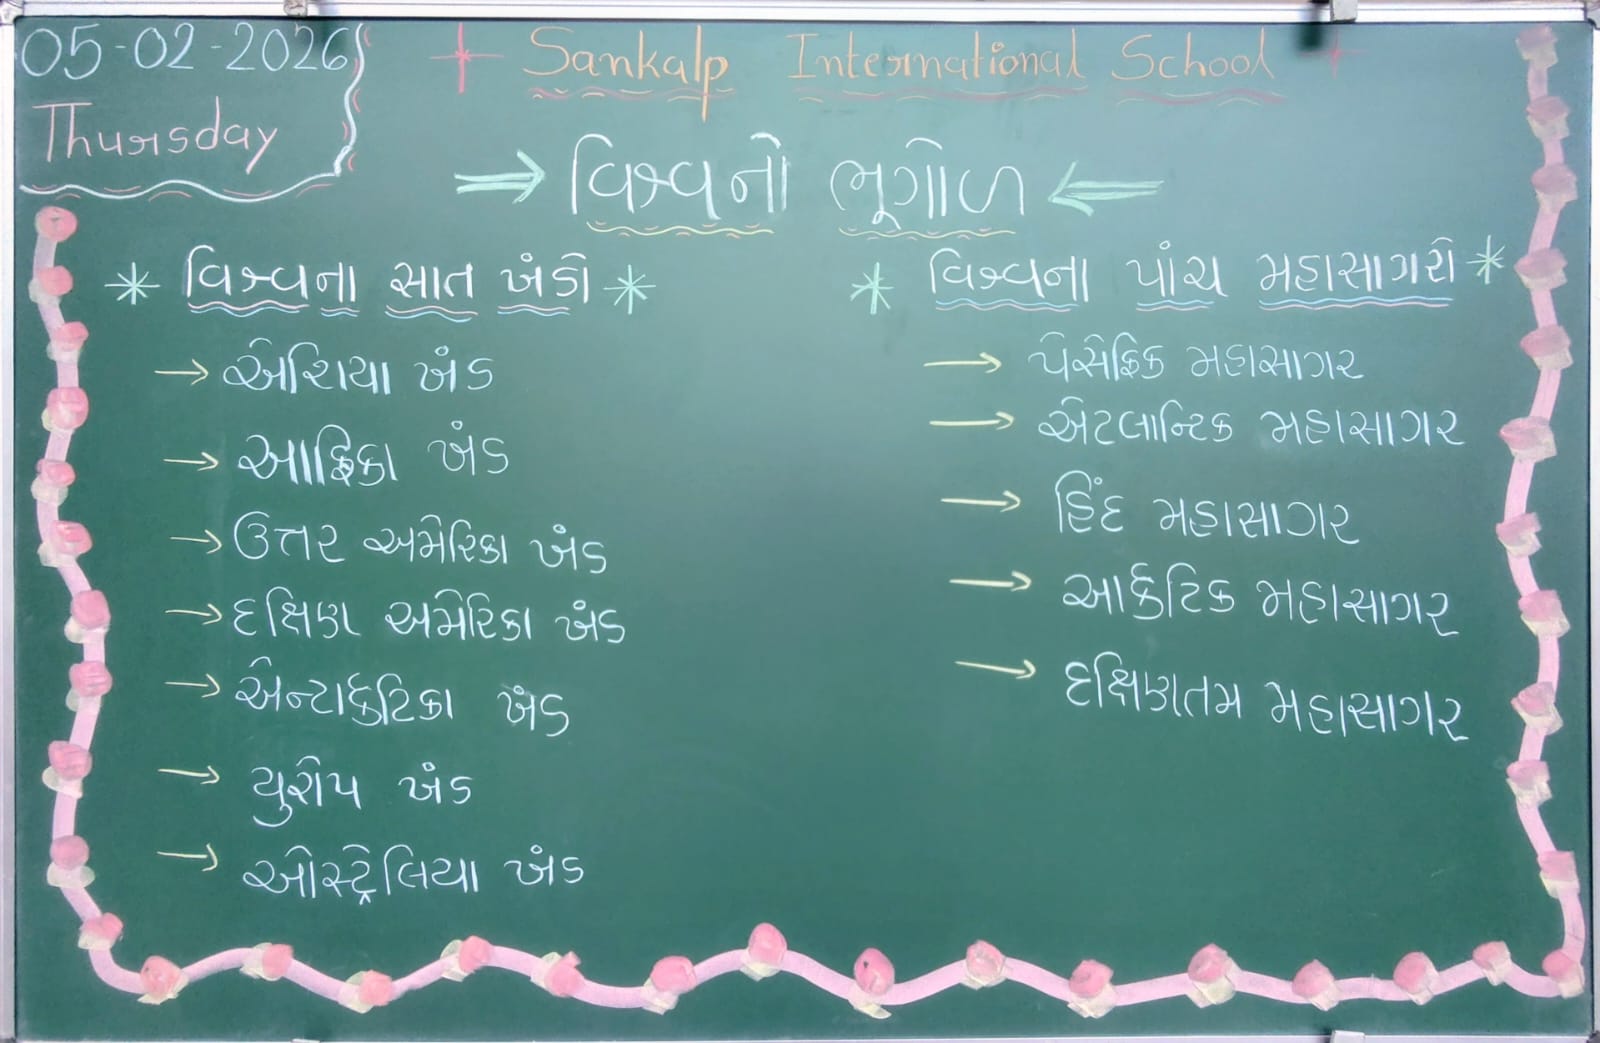 05-02-2026
Thursday
Sankalp International School
વિશ્વનો ભૂગોળ
વિશ્વના સાત ખંડો
એશિયા ખંડ
આફ્રિકા ખંડ
ઉત્તર અમેરિકા ખંડ
દક્ષિણ અમેરિકા ખંડ
એન્ટાર્કટિકા ખંડ
યુરોપ ખંડ
ઓસ્ટ્રેલિયા ખંડ
વિશ્વના પાંચ મહાસાગરો
પેસેફિક મહાસાગર
એટલાન્ટિક મહાસાગર
હિંદ મહાસાગર
આર્કટિક મહાસાગર
દક્ષિણતમ મહાસાગર